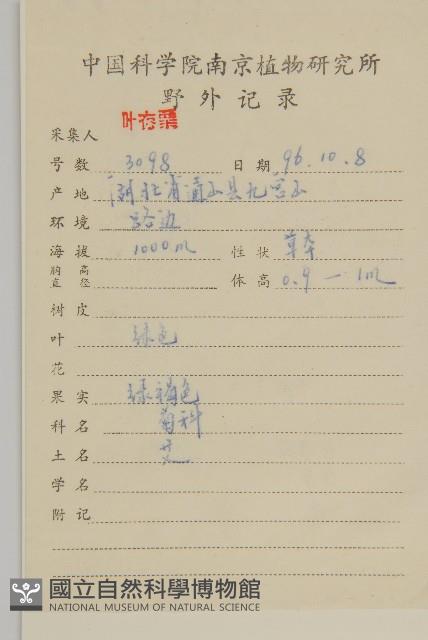 中国科学院南京植物研究所
野外记录
采集人 叶存粟
号数 3098 日期 96.10.8
产地 湖北省通山县九宫山
环境 路边
海拔 1000m 性状 草本
胸高直径 体高 0.9 — 1m
树皮
叶 绿色
花
果实 绿褐色
科名 菊科
土名 艾
学名
附记
國立自然科學博物館
NATIONAL MUSEUM OF NATURAL SCIENCE